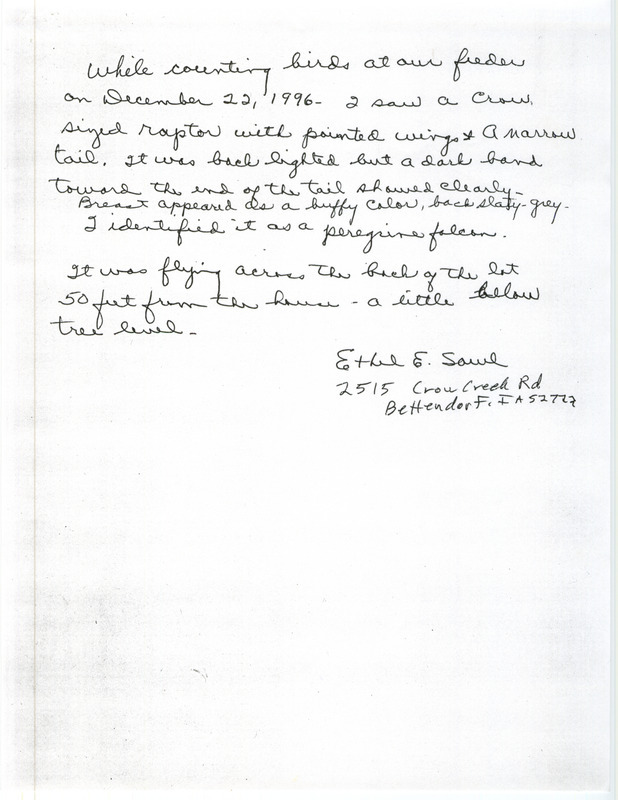 While counting birds at our feeder
on December 22, 1996- I saw a Crow
sized raptor with pointed wings & A narrow
tail. It was back lighted but a dark band
toward the end of the tail showed clearly-
Breast appeared as a buffy color, back slaty-grey-
I identified it as a peregrine falcon.
It was flying across the back of the lot
50 feet from the house - a little below
tree level-
Ethel E. Sawl
2515 Crow Creek Rd
Bettendorf, IA 52722